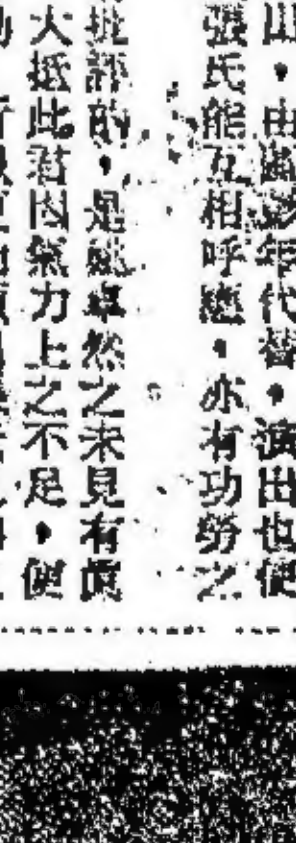 山，由趙影年代替，演出也便
張氏能互相呼應，亦有功勞之
批評的，是戚卓然之未見有眞
大抵此君因氣力上之不足，便